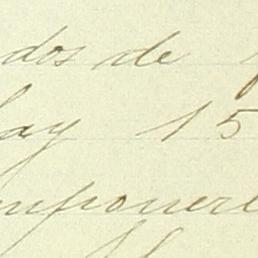 dos de
hay 15
mponer